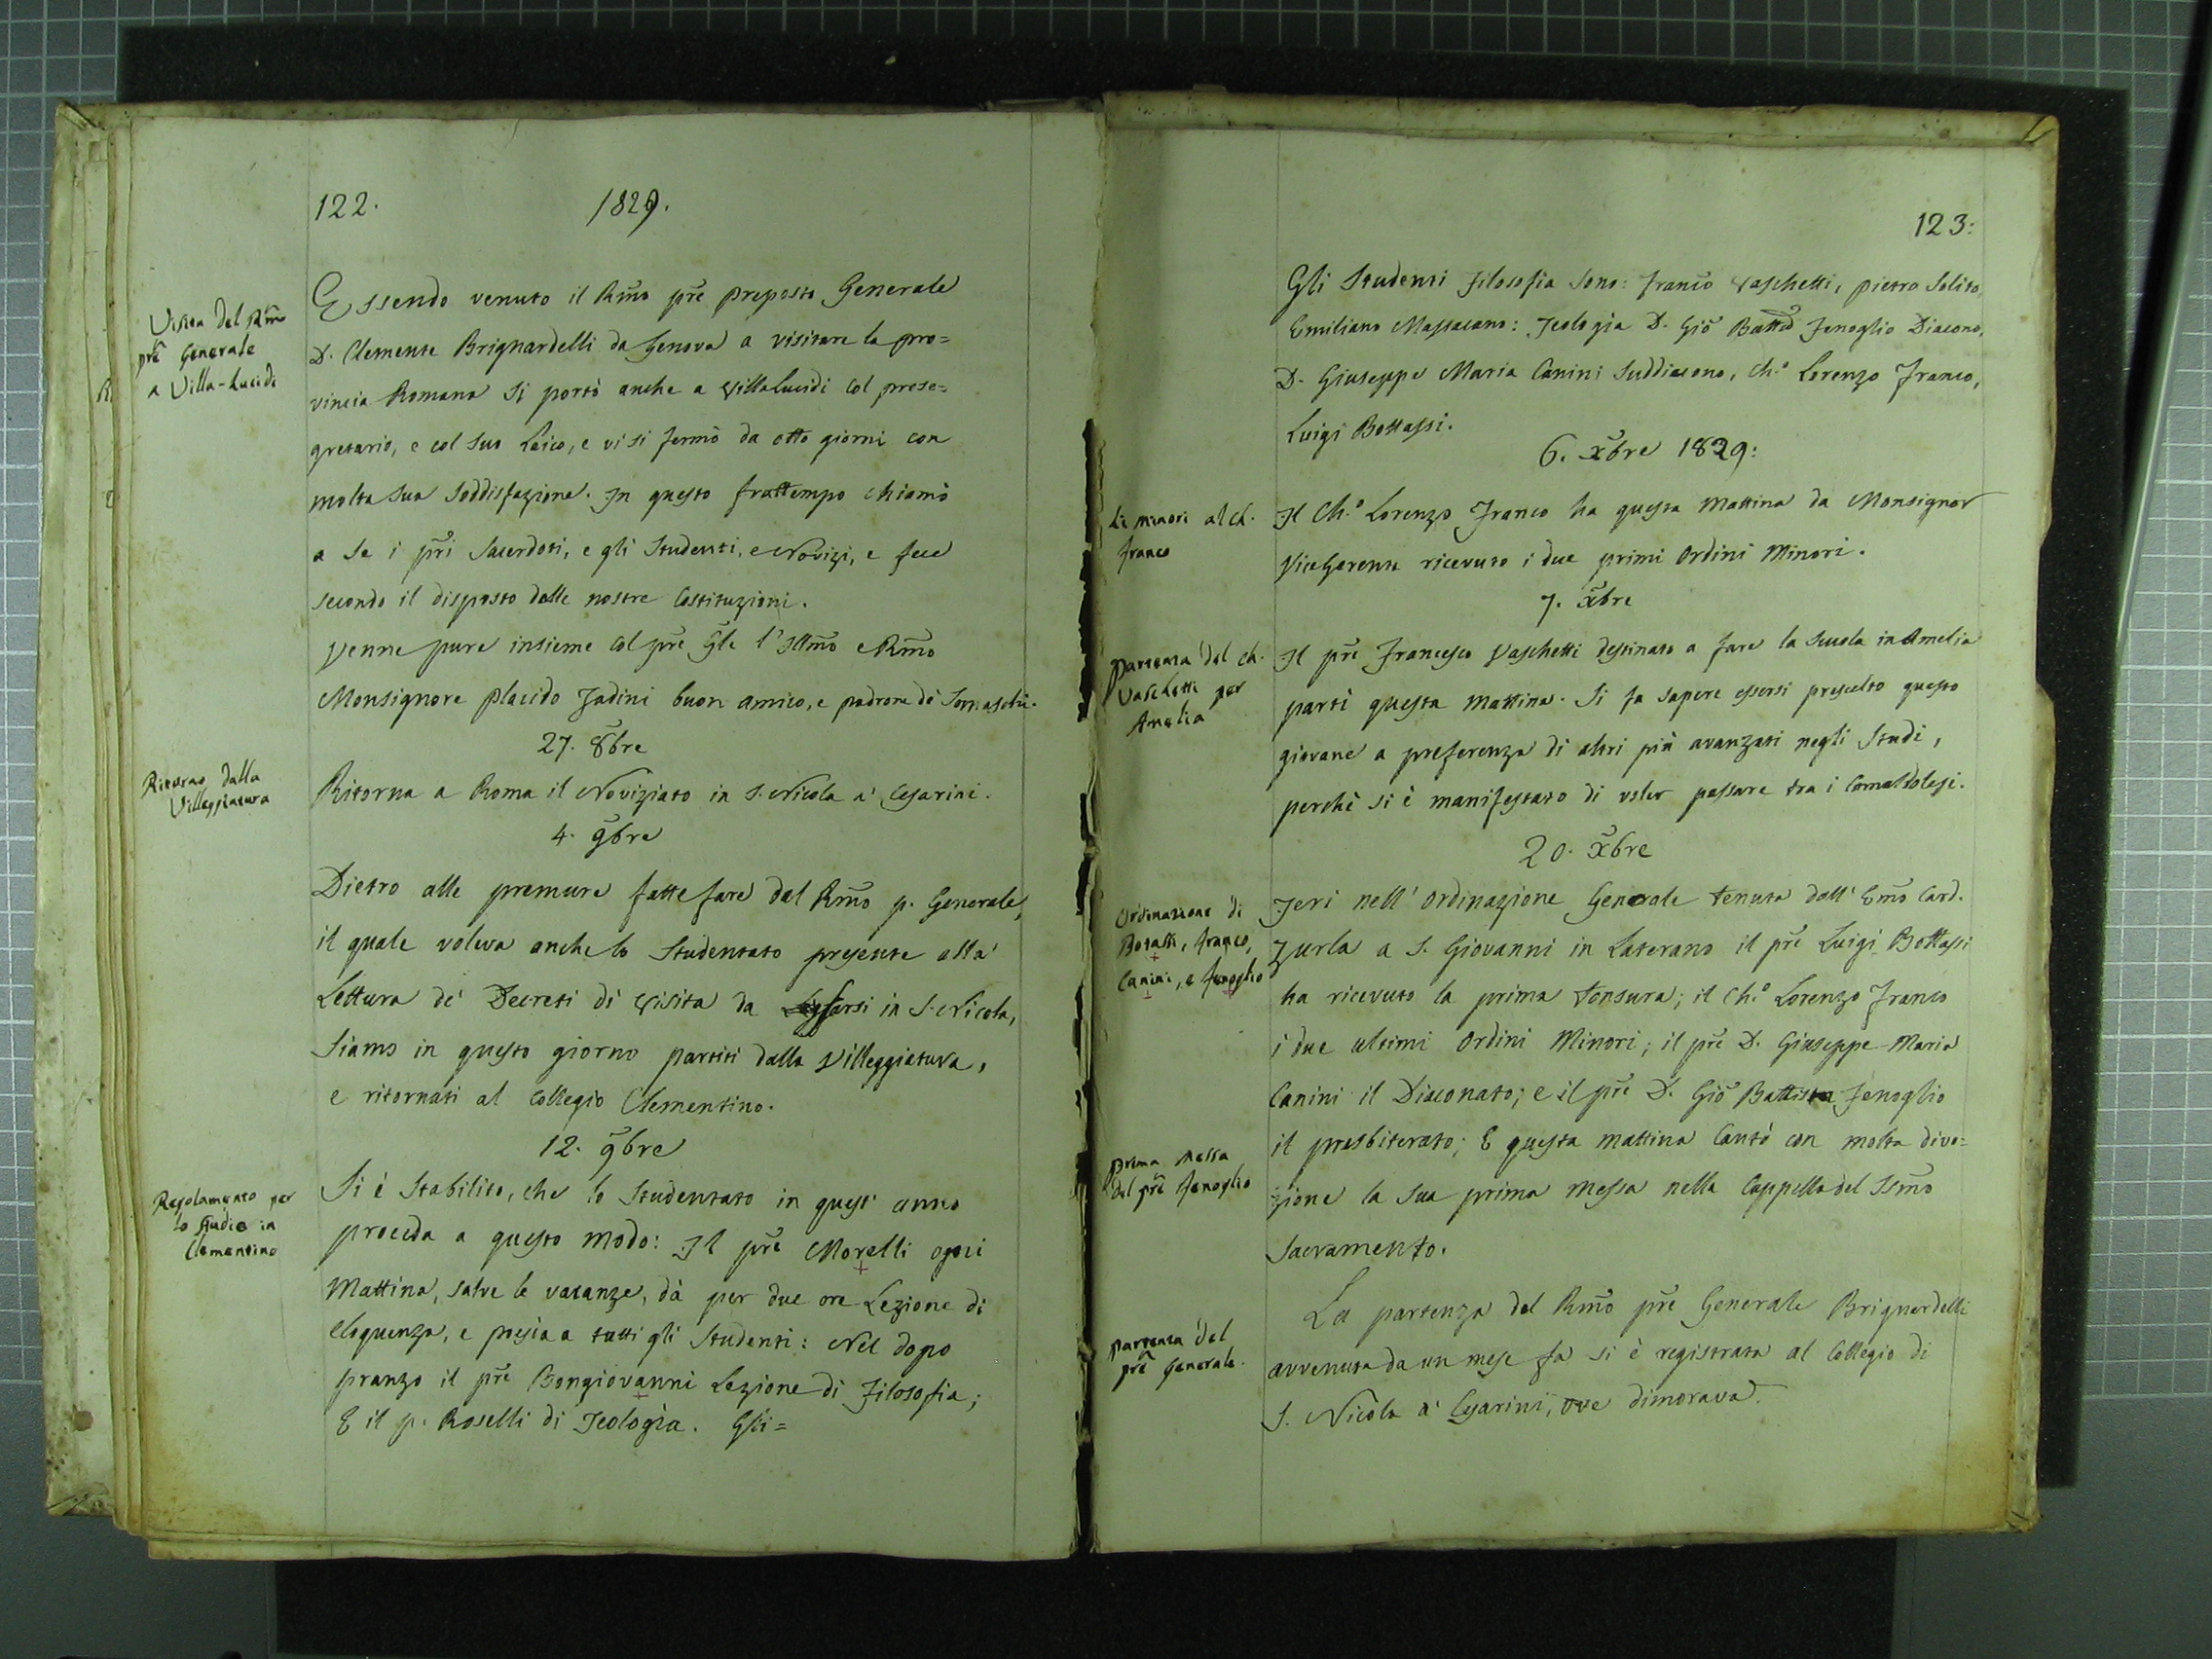 122.
1829.
Visita del Rm̃o
prẽ Generale
a Villa-Lucidi
Essendo venuto il Rm̃o prẽ Preposto Generale
D. Clemente Brignardelli da Genova a visitare la pro=
vincia Romana si portò anche a Villa Lucidi col prose=
gretario, e col suo Laico, e vi si fermò da otto giorni con
molta sua soddisfazione. In questo frattempo chiamò
a se i pr̃i Sacerdoti, e gli Studenti, e Novizj, e fece
secondo il disposto delle nostre Costituzioni.
Venne pure insieme col prẽ Gl̃e l'Illm̃o e Rm̃o
Monsignore Placido Tadini buon amico, e padrone de' Somaschi.
27. 8bre
Ritorno dalla
Villeggiatura
Ritorna a Roma il Noviziato in S. Nicola a' Cesarini.
4. 9bre
Dietro alle premure fatte fare dal Rm̃o p. Generale,
il quale voleva anche lo Studentato presente alla
Lettura de' Decreti di Visita da in S. Nicola,
Siamo in questo giorno partiti dalla Villeggiatura,
e ritornati al Collegio Clementino.
12. 9bre
Regolamento per
lo Studio in
Clementino
Si è Stabilito, che lo Studentato in quest' anno
proceda a questo modo: Il prẽ Morelli ogni
Mattina, salve le vacanze, dà per due ore Lezione di
eloquenza, e poesia a tutti gli Studenti: Nel dopo
pranzo il prẽ Bongiovanni Lezione di Filosofia;
E il p. Roselli di Teologia. Gli=
123:
Gli Studenti Filosofia sono: Franc̃o Vaschetti, Pietro Solito,
Emiliano Massacano: Teologia D. Giõ Battã Fenoglio Diacono,
D. Giuseppe Maria Canini Suddiacono, Ch.º Lorenzo Franco,
Luigi Bottassi.
6. Xbre 1829:
Li minori al Ch.
Franco
Il Ch.º Lorenzo Franco ha questa Mattina da Monsignor
ViceGerente ricevuto i due primi Ordini Minori.
7. Xbre
Partenza del Ch.
Vaschetti per
Amelia
Il prẽ Francesco Vaschetti destinato a fare la Scuola in Amelia
partì questa Mattina. Si fa sapere essersi prescelto questo
giovane a preferenza di altri più avanzati negli Studi,
perchè si è manifestato di voler passare tra i Camaldolesi.
20. Xbre
Ordinazione di
Botassi, Franco,
Canini, e Fenoglio
Jeri nell' Ordinazione Generale tenuta dall' Em̃o Card.
Zurla a S. Giovanni in Laterano il prẽ Luigi Bottassi
ha ricevuto la prima Tonsura; il Ch.º Lorenzo Franco
i due ultimi Ordini Minori; il prẽ D. Giuseppe Maria
Canini il Diaconato; e il prẽ D. Giõ Battista Fenoglio
il presbiterato; E questa mattina Cantò con molta divo=
Prima Messa
del prẽ Fenoglio
zione la sua prima Messa nella Cappella del SSm̃o
Sacramento.
Partenza del
prẽ Generale.
La partenza del Rm̃o prẽ Generale Brignardelli
avvenuta da un mese fa si è registrata al Collegio di
S. Nicola a' Cesarini, ove dimorava.